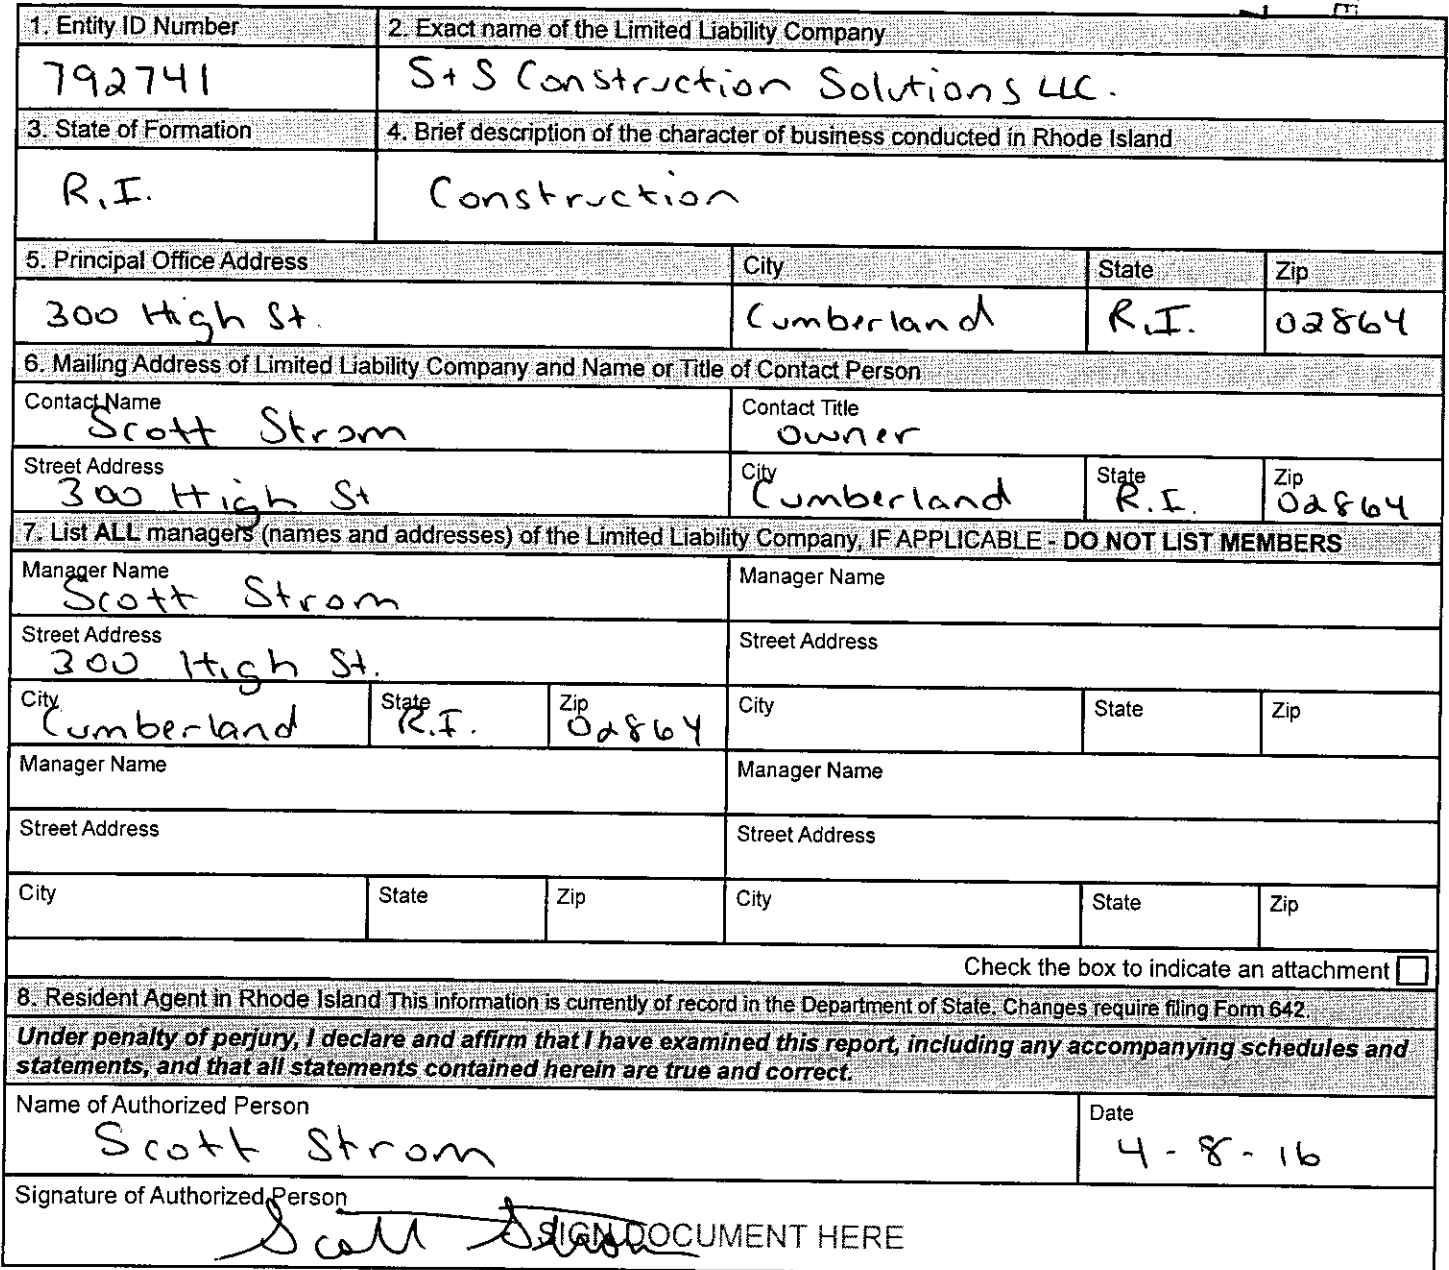 1. Entity ID Number
2. Exact name of the Limited Liability Company
792741
S+S Construction Solutions LLC.
3. State of Formation
4. Brief description of the character of business conducted in Rhode Island
R.I.
Construction
5. Principal Office Address
City
State
Zip
300 High St.
Cumberland
R.I.
02864
6. Mailing Address of Limited Liability Company and Name or Title of Contact Person
Contact Name
Scott Strom
Contact Title
owner
Street Address
300 High St
City
Cumberland
State
R.I.
Zip
02864
7. List ALL managers (names and addresses) of the Limited Liability Company, IF APPLICABLE - DO NOT LIST MEMBERS
Manager Name
Scott Strom
Manager Name
Street Address
300 High St.
Street Address
City
Cumberland
State
R.I.
Zip
02864
City
State
Zip
Manager Name
Manager Name
Street Address
Street Address
City
State
Zip
City
State
Zip
Check the box to indicate an attachment
8. Resident Agent in Rhode Island This information is currently of record in the Department of State. Changes require filing Form 642.
Under penalty of perjury, I declare and affirm that I have examined this report, including any accompanying schedules and
statements, and that all statements contained herein are true and correct.
Name of Authorized Person
Scott Strom
Date
4-8-16
Signature of Authorized Person
Scott Strom
SIGN DOCUMENT HERE